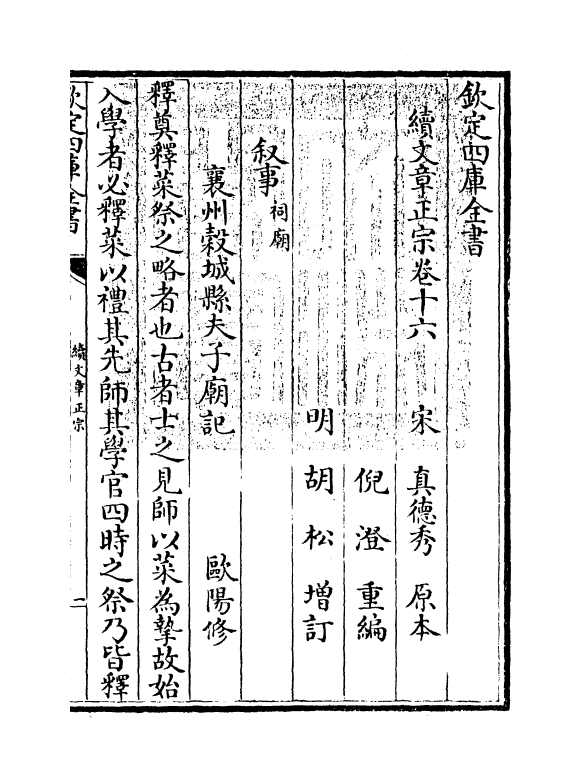 欽定四庫全書
續文章正宗卷十六
宋　真德秀　原本
倪澄　重編
明　胡松　增訂
叙事祠廟
襄州穀城縣夫子廟記　歐陽修
釋奠釋菜祭之略者也古者士之見師以菜為摯故始
入學者必釋菜以禮其先師其學官四時之祭乃皆釋
欽定四庫全書
續文章正宗